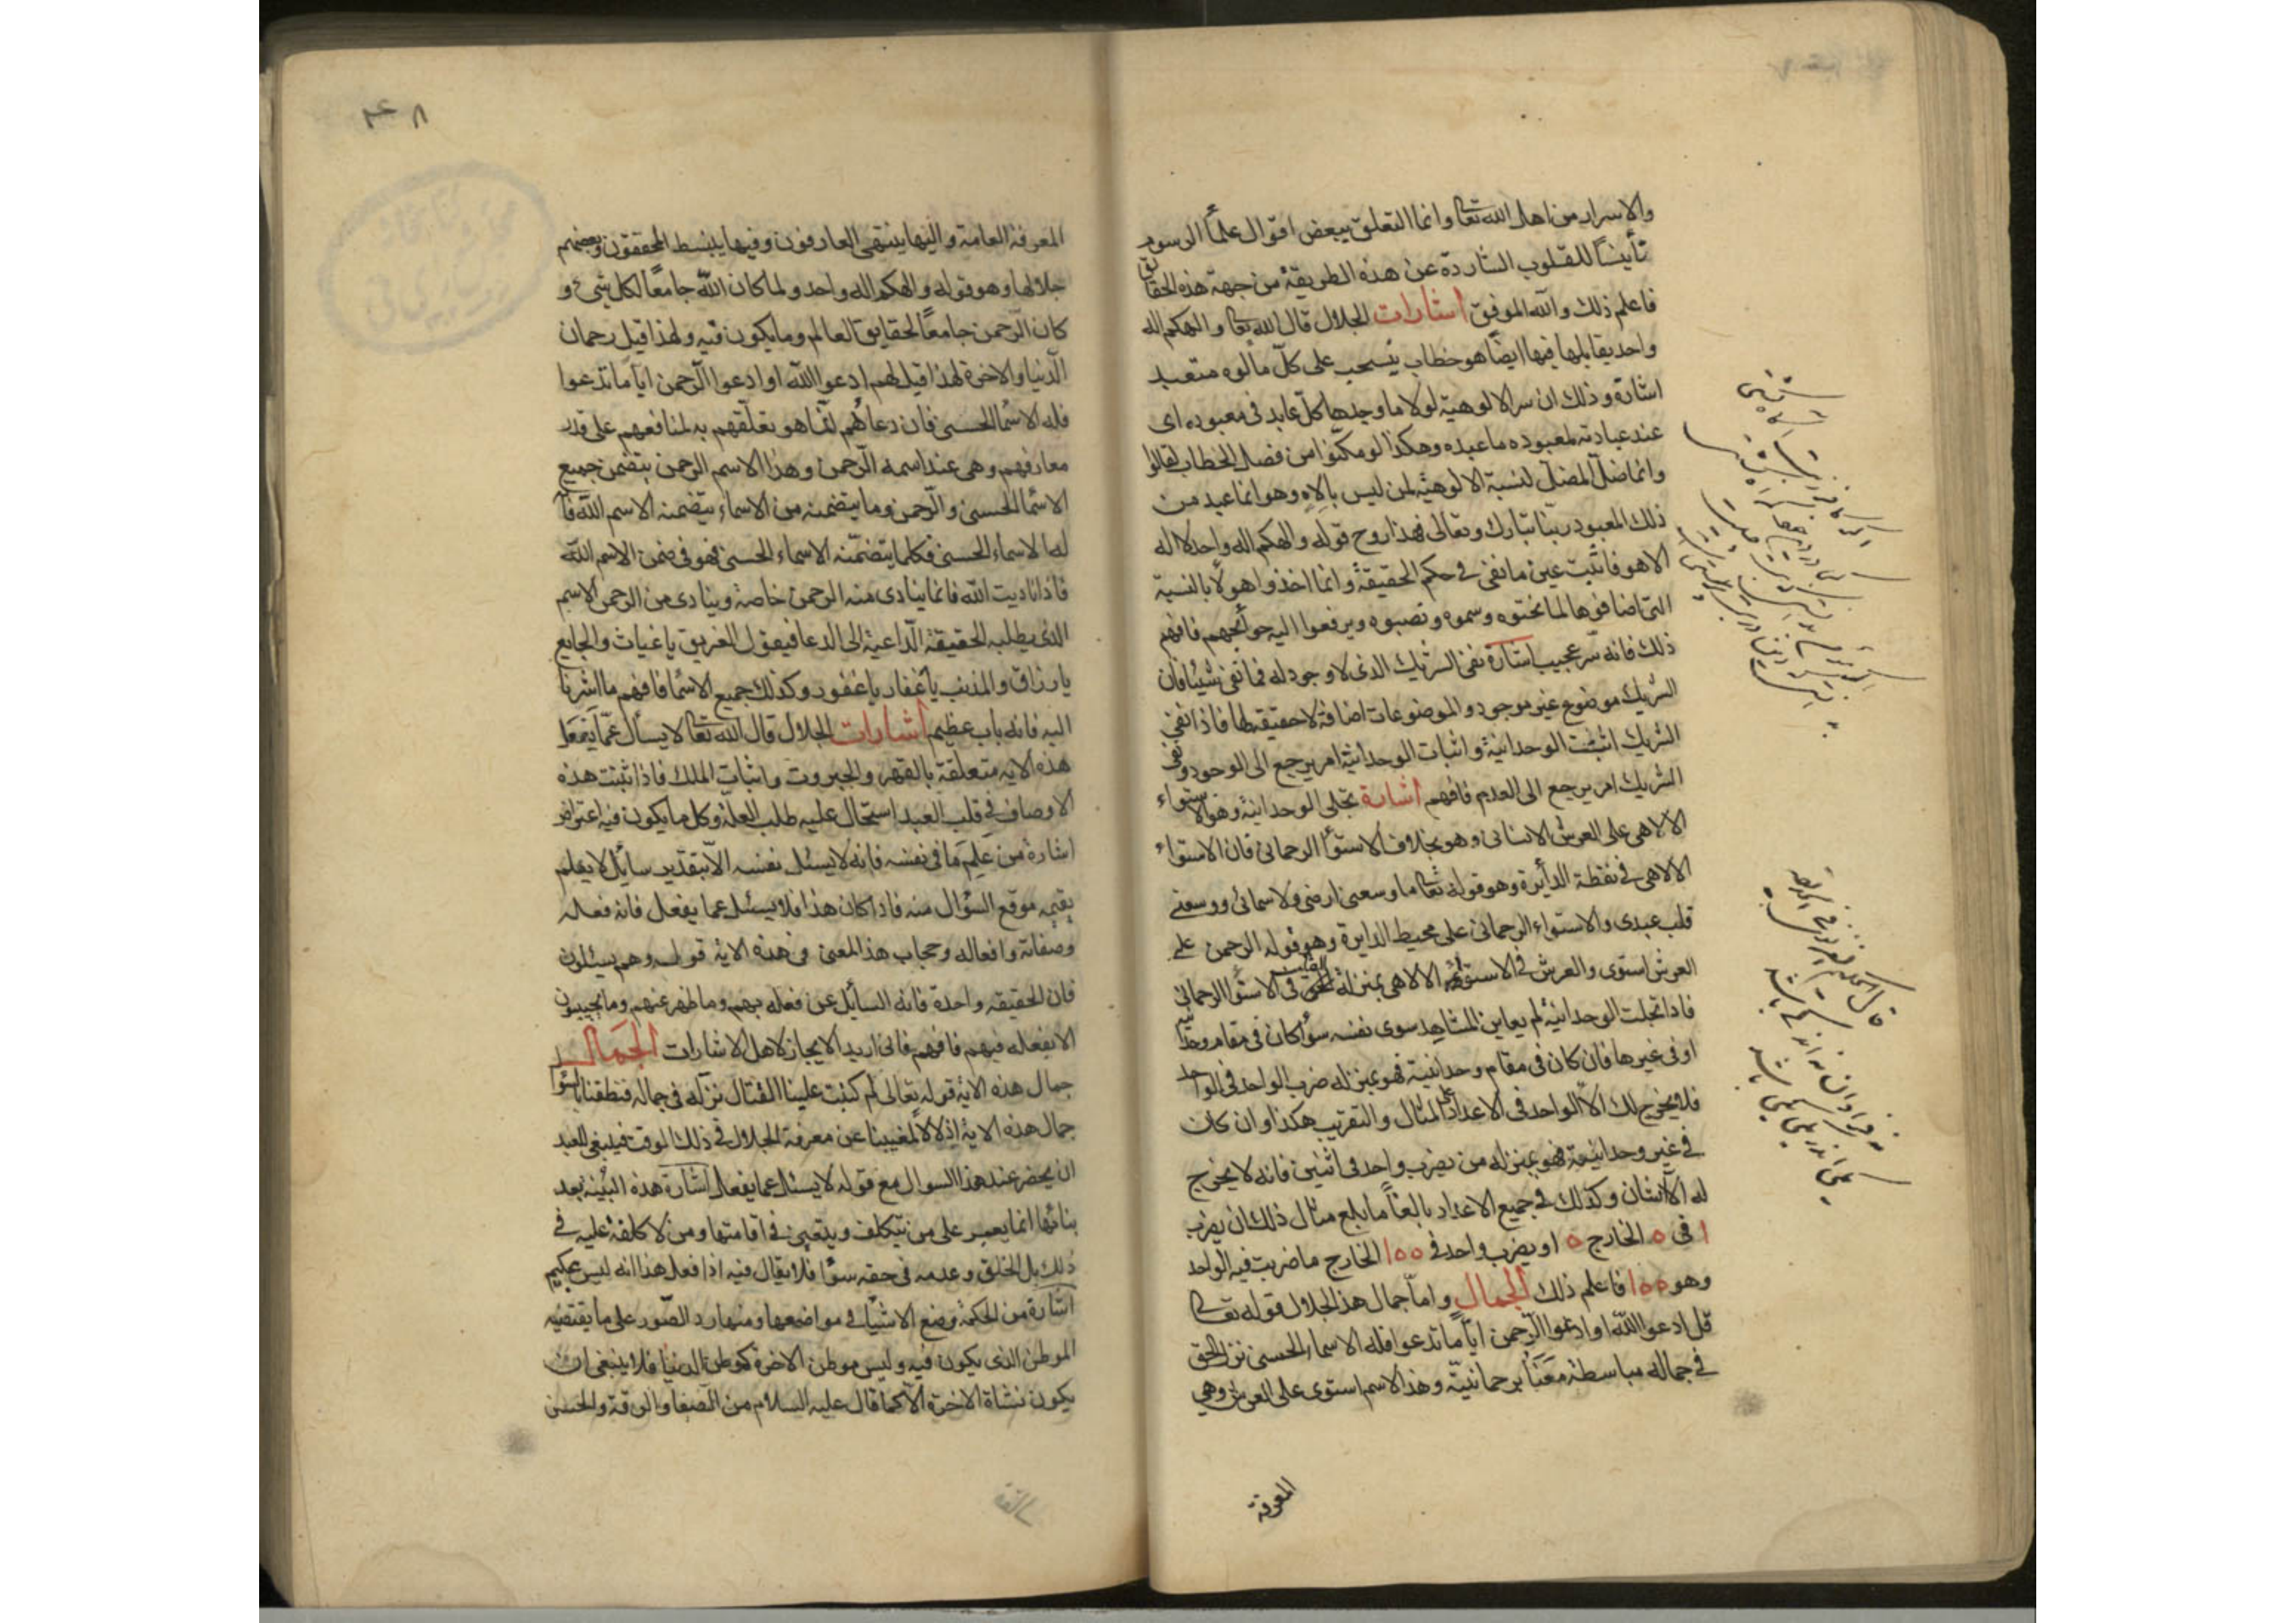 والاسرار من اهل الله تعا وانما التعلق ببعض اقوال علمأ الرسوم
تأنيسًا للقلوب الشاردة عن هذه الطريقة من جهة هذه الحقائق
فاعلم ذلك والله الموفق اشارات الجلال قال الله تعا والهكم اله
واحد يقابلها فيها ايضًا هو خطاب ينسحب على كلّ مألوه متعبد
اشارة وذلك ان سر الالوهية لولا ما وجدها كلّ عابد فى معبوده اى
عند عبادته لمعبوده ما عبده وهكذا لو مكنوا من فصل الخطاب لقالوا
وانما ضلّ المضلّ لنسبة الالوهيّة لمن ليس بالاه وهو انما عبد من
ذلك المعبود ربنا تبارك وتعالى فهذا روح قوله والهكم اله واحد لا اله
الا هو فاثبت عين ما نفى فى حكم الحقيقة وانما اخذوا هولا بالنسبة
التى اضافوها لما نحتوه وسموه ونصبوه ويرفعوا اليه حوائجهم فافهم
ذلك فانه سرّ عجيب اشارة نفى الشريك الذى لا وجود له فما نفى شيئا فان
الشريك موضوع غير موجود والموضوعات اضافة لا حقيقة لها فاذا نفى
الشريك اثبتت الوحدانية واثبات الوحدانية امر يرجع الى الوجود ونفى
الشريك امر يرجع الى العدم فافهم اشارة تجلى الوحدانية وهو الاستواء
الالاهى على العرش الانسانى وهو بخلاف الاستوأ الرحمانى فان الاستواء
الالاهى فى نقطة الدأيرة وهو قوله تعا ما وسعنى ارضى ولا سمائى ووسعنى
قلب عبدى والاستواء الرحمانى على محيط الدايرة وهو قوله الرحمن على
العرش استوى والعرش فى الاستوأ الالاهى بمنزلة القلب فى الاستوأ الرحمانى
فاذا تجلت الوحدانية لم يعاين المشاهد سوى نفسه سوأ كان فى مقام وحدانية
او فى غيرها فان كان فى مقام وحدانية فهو بمنزله ضرب الواحد فى الواحد
فلا يخرج لك الّا الواحد فى الاعداد على المثال والتقريب هكذا وان كان
فى غير وحدانيته فهو بمنزله من يضرب واحد فى اثنين فانه لا يخرج
له الّا اثنان وكذلك فى جميع الاعداد بالغًا ما بلغ مثال ذلك ان يضرب
١ فى ٥ الخارج ٥ او يضرب واحد فى ١٥٥ الخارج ما ضربت فيه الواحد
وهو ١٥٥ فاعلم ذلك الجمال وامّا جمال هذا الجلال قوله تعا
قل ادعوا الله او ادعوا الرّحمن ايًّا ما تدعوا فله الاسماء الحسنى نزل الحق
فى جماله مباسطة مَعَنَا برحمانيّة وهذا الاسم استوى على العرش وهى
المعرفة
٤٨
المعرفة العامة واليها ينتهى العارفون وفيها ينبسط المحققون وبعضهم
جلالها وهو قوله والهكم اله واحد ولما كان الله جامعًا لكل شىء و
كان الرّحمن جامعًا لحقايق العالم وما يكون فيه ولهذا قيل رحمان
الدّنيا والاخرة لهذا قيل لهم ادعوا الله او ادعوا الرّحمن ايًّا ما تدعوا
فله الاسمأ الحسنى فان دعاءهم انّما هو تعلّقهم به لمنافعهم على قدر
معارفهم وهى عند اسمه الرّحمن وهذا الاسم الرحمن يتضمن جميع
الاسمأ الحسنى والرّحمن وما يتضمنه من الاسماء يتضمنه الاسم الله فا
له الاسماء الحسنى فكلما يتضمّنه الاسماء الحسنى فهو فى ضمن الاسم الله
فاذا ناديت الله فانما ينادى منه الرحمن خاصة وينادى من الرحمن الاسم
الذى يطلبه الحقيقة الدّاعية الى الدعا فيقول الغريق يا غياث والجايع
يا رزاق والمذنب يا غفار يا غفور وكذلك جميع الاسمأ فافهم ما اشرنا
اليه فانه باب عظيم اشارات الجلال قال الله تعا لا يسأل عمّا يفعل
هذه الاية متعلقة بالقهر والجبروت واثبات الملك فاذا ثبتت هذه
الاوصاف فى قلب العبد استحال عليه طلب العلة وكل ما يكون فيه اعتراض
اشارة من عَلِمَ ما فى نفسه فانه لا يسئل نفسه الّا بتقدير سائل لا يعلم
يقيمه موقع السؤال منه فاذا كان هذا فلا يسئل عما يفعل فانه فعله
وصفاته وافعاله وحجاب هذا المعنى فى هذه الاية قوله وهم يسئلون
فان الحقيقة واحدة فانه السأيل عن فعله بهم وما ظهر عنهم وما يجيبون
الا بفعله فيهم فافهم فانى اريد الايجاز لاهل الاشارات الجمال
جمال هذه الاية قوله تعالى لم كتبت علينا القتال نزّله فى جماله فنطقنا بالسؤال
جمال هذه الاية اذ لا لا لمغيبنا عن معرفة الجلال فى ذلك الوقت فينبغى للعبد
ان يحضر عند هذا السوال مع قوله لا يسئل عما يفعل اشارة هذه البنية بعد
بنائها انما يعسر على من يتكلف ويتعنى فى اقامتها ومن لا كلفة عليه فى
ذلك بل الخلق وعدمه فى حقه سوأ فلا يقال فيه اذا فعل هذا انه ليس بحكيم
اشارة من الحكمة وضع الاشيا فى مواضعها ومنها رد الصّور على ما يقتضيه
الموطن الذى يكون فيه وليس موطن الاخرة كموطن الدنيا فلا ينبغى ان
يكون نشاة الاخرة الّا كما قال عليه السلام من الصفا والرقة والحسن